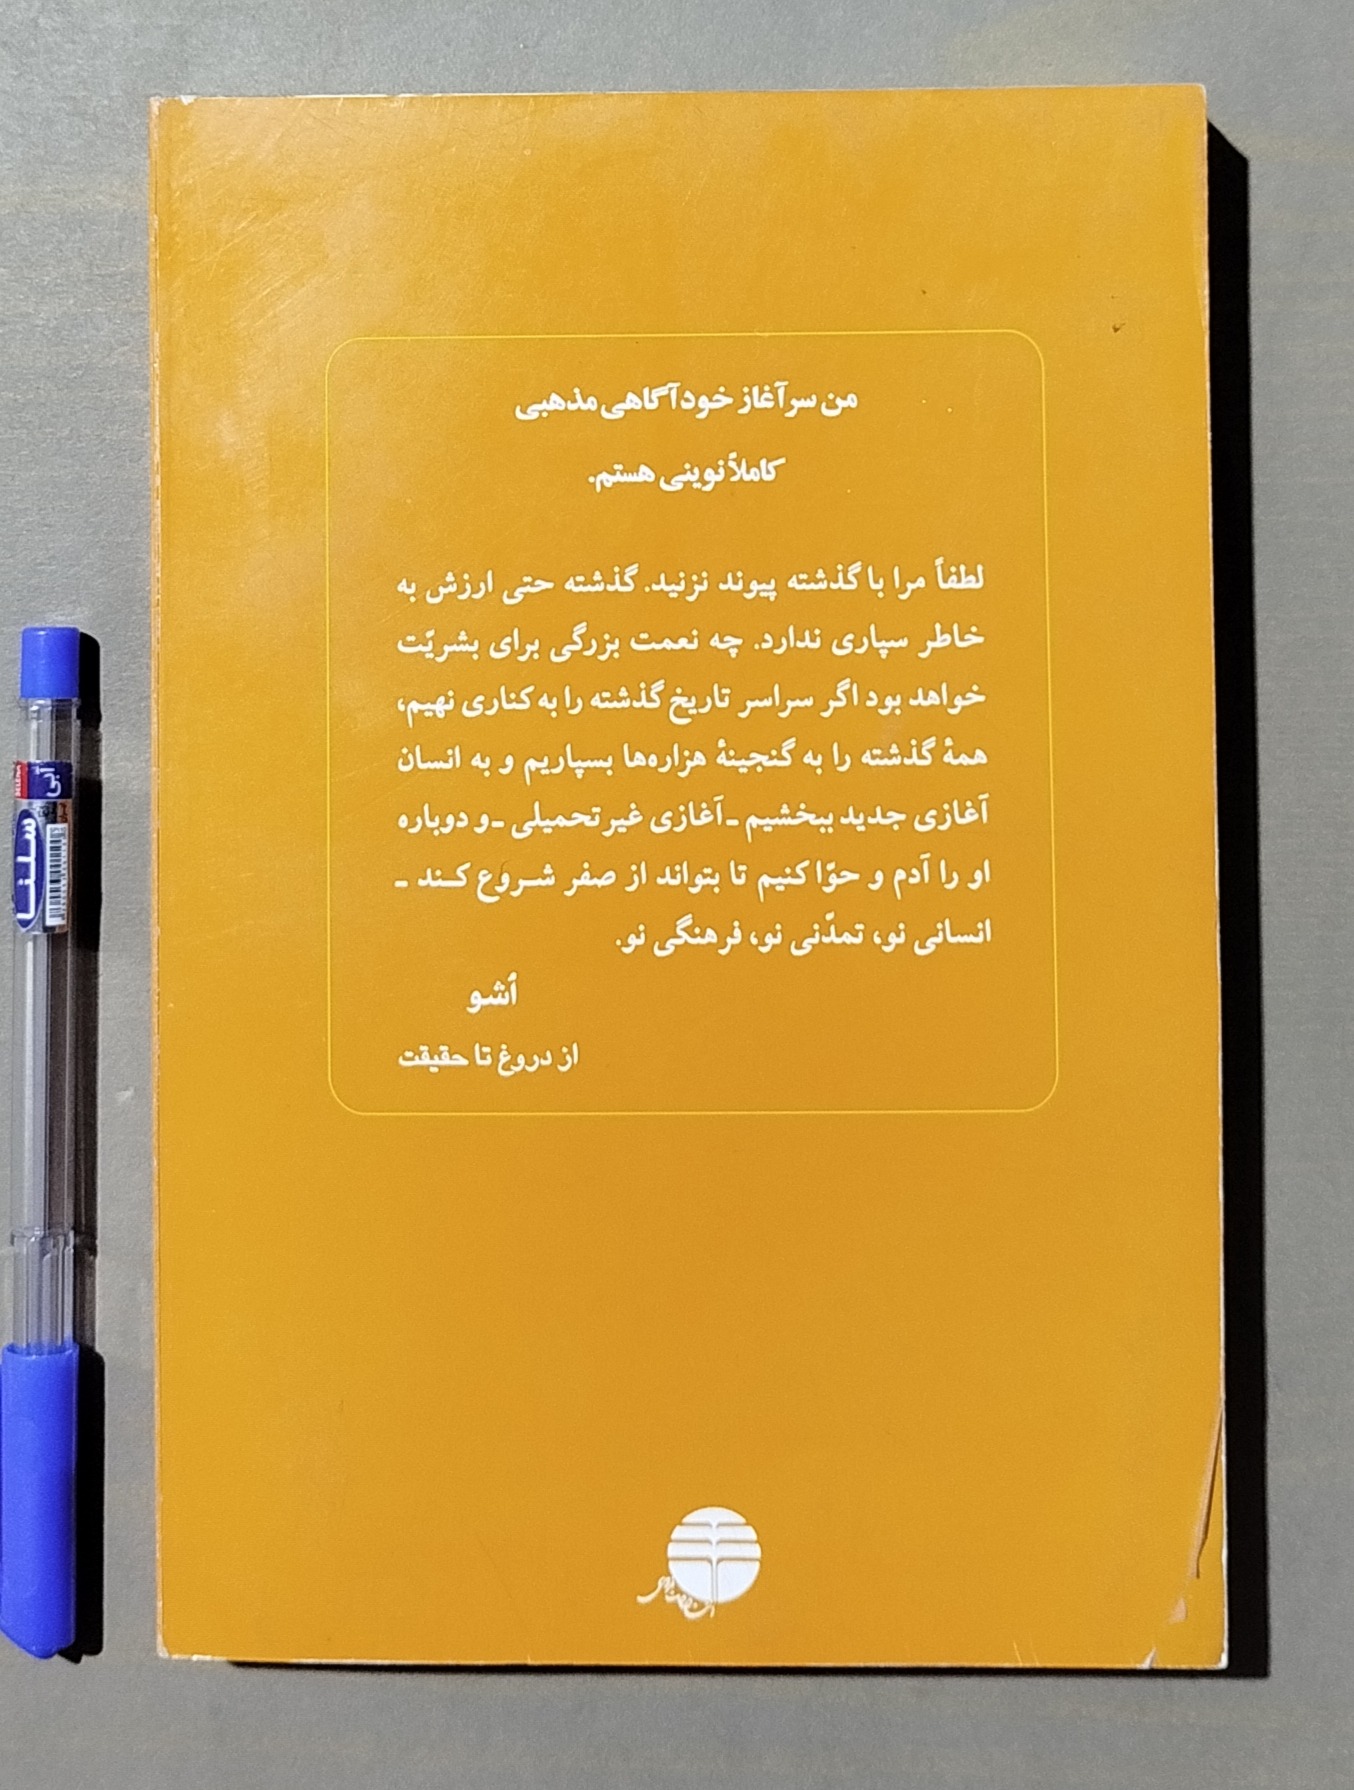 من سرآغاز خودآگاهی مذهبی
کاملاً نوینی هستم.
لطفاً مرا با گذشته پیوند نزنید. گذشته حتی ارزش به
خاطر سپاری ندارد. چه نعمت بزرگی برای بشریّت
خواهد بود اگر سراسر تاریخ گذشته را به کناری نهیم،
همهٔ گذشته را به گنجینهٔ هزاره‌ها بسپاریم و به انسان
آغازی جدید ببخشیم ـ آغازی غیرتحمیلی ـ و دوباره
او را آدم و حوّا کنیم تا بتواند از صفر شـروع کـند ـ
انسانی نو، تمدّنی نو، فرهنگی نو.
اُشو
از دروغ تا حقیقت
آبی
سلنا